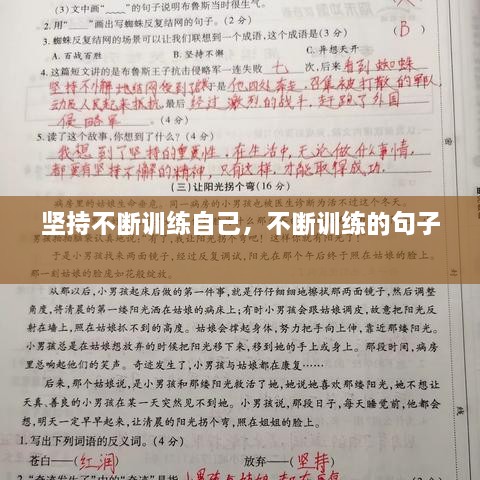 (3)文中画"﹏"的句子说明布鲁斯当时很生气。
2.用"——"画出写蜘蛛反复结网的句子。(2分)
3.蜘蛛反复结网可以让我们联想到一个成语,这个成语是(3分) (B)
A.百战百胜 B.坚持不懈 C.异想天开
4.这篇短文讲的是布鲁斯王子抗击侵略军一连失败七次,后来看到蜘蛛
坚持不懈地结网
他四处奔走,召集被打散的军队,
动员人民起来抵抗,最后经过激烈的战斗,赶跑了外国
侵略军。(4分)
5.读了这个故事,你想到了什么?(4分)
我想到了坚持的重要性,在生活中,无论做什么事情,
都要有坚持不懈的精神,只有这样,才能取得成功。
(三)让阳光拐个弯(16分)
坚持不断训练自己,不断训练的句子
于是小男孩找来两面镜子,经过反复调试,阳光在那个午后终于照在姑娘的
一瞬
姑娘的脸庞如花般绽放。
从那以后,小男孩起床后做的第一件事,就是仔仔细细地擦拭那两面镜子,然后调整
角度,将清晨的第一缕阳光洒在姑娘的病床上;有时小男孩会跟姑娘调皮,故意把阳光反
射在墙上,照在姑娘抓不到的高度。姑娘会撑起身体,努力把手向上伸,靠近那缕阳光。
小男孩总是在姑娘想放弃的时候把阳光移下来,移到她的手上或身上。那段时间,病房
里总会响起他们的笑声。奇迹发生了,小男孩与姑娘都在康复……
后来,那个姑娘说,是小男孩和那缕阳光救活了她,她说她喜欢那缕阳光,她不想让
天真、善良的小男孩在某一天突然见不到她。小男孩说,那段日子,每天睡觉前,他都会
想,明天一定早早起来,让清晨的阳光拐个弯,照在姐姐的脸上。
1.写出下列词语的反义词。(4分)
苍白——(红润) 放弃——(坚持)
2."奇迹发生了"中的"奇迹"是指